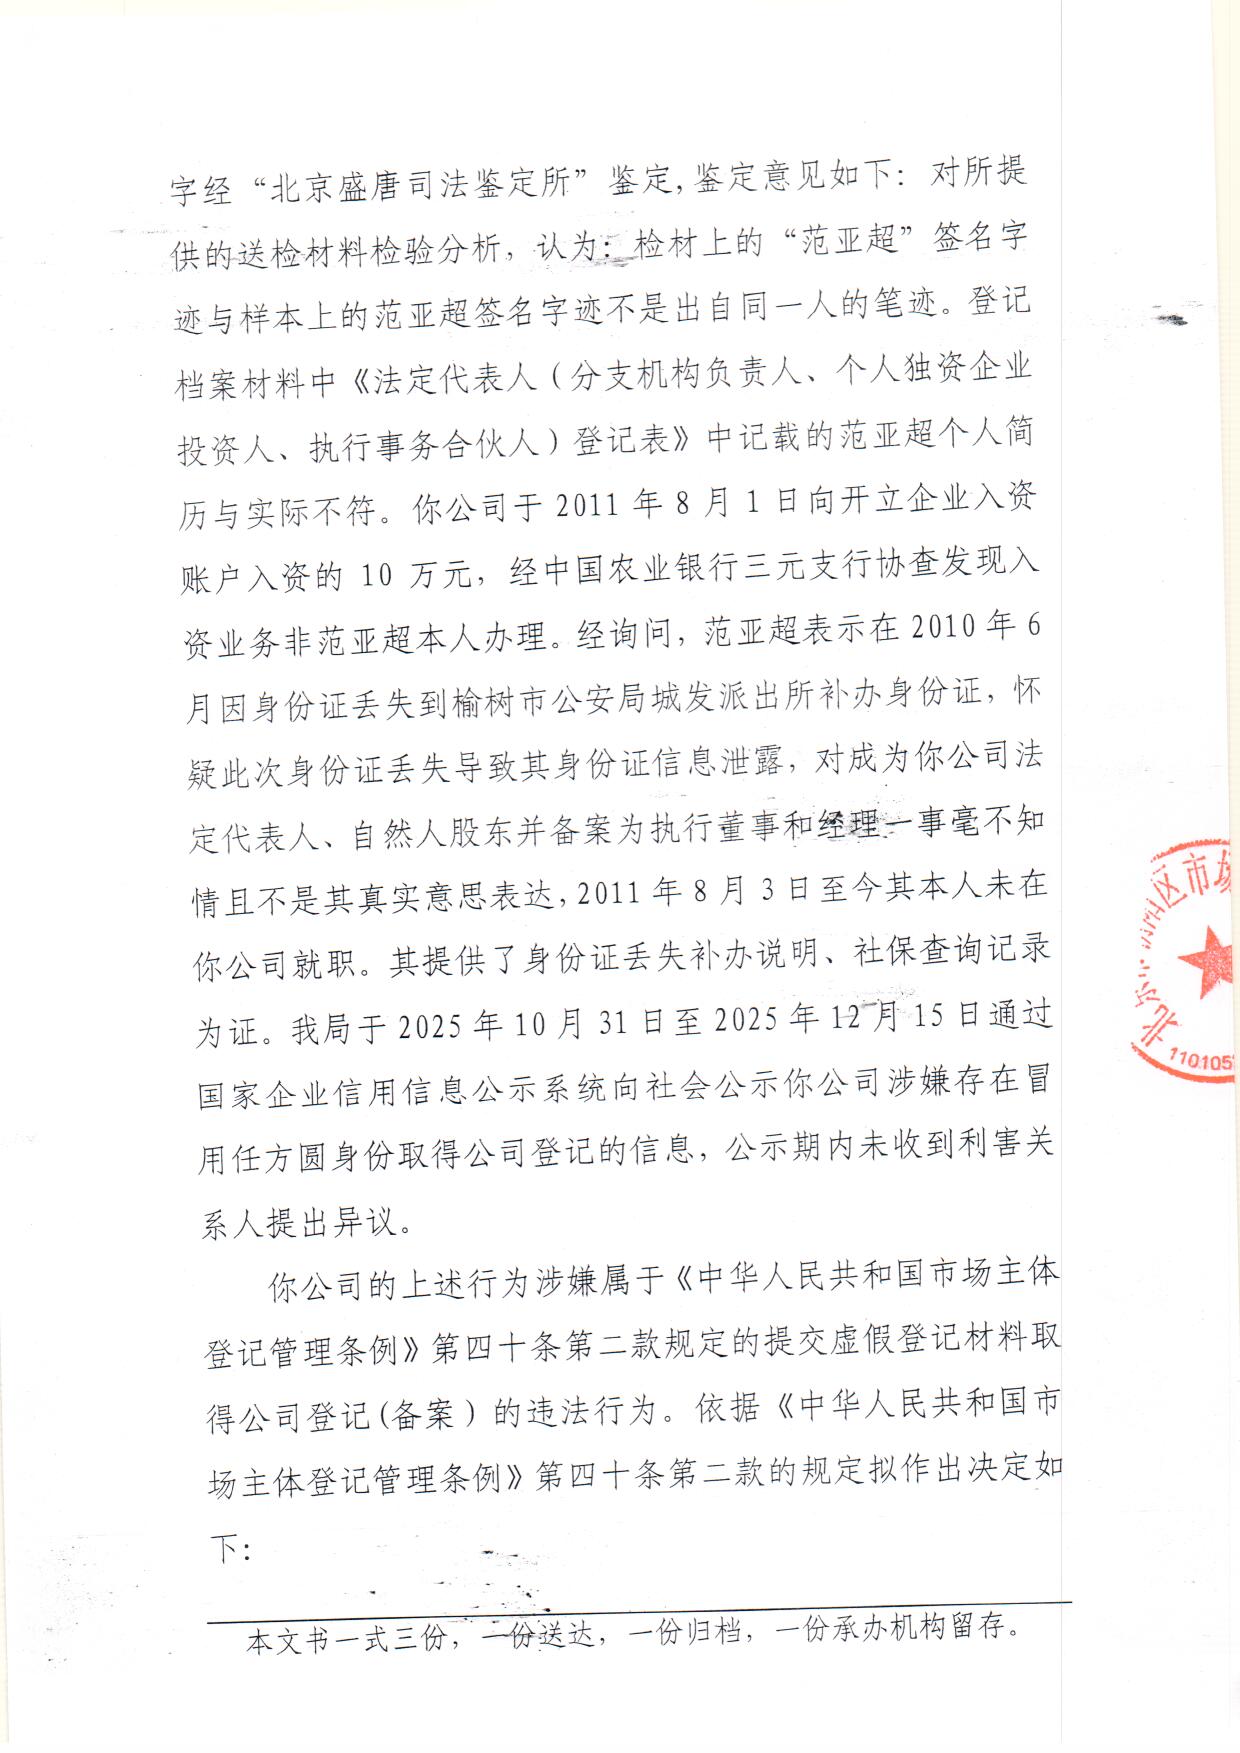 字经“北京盛唐司法鉴定所”鉴定,鉴定意见如下：对所提
供的送检材料检验分析，认为：检材上的“范亚超”签名字
迹与样本上的范亚超签名字迹不是出自同一人的笔迹。登记
档案材料中《法定代表人（分支机构负责人、个人独资企业
投资人、执行事务合伙人）登记表》中记载的范亚超个人简
历与实际不符。你公司于 2011 年 8 月 1 日向开立企业入资
账户入资的 10 万元，经中国农业银行三元支行协查发现入
资业务非范亚超本人办理。经询问，范亚超表示在 2010 年 6
月因身份证丢失到榆树市公安局城发派出所补办身份证，怀
疑此次身份证丢失导致其身份证信息泄露，对成为你公司法
定代表人、自然人股东并备案为执行董事和经理一事毫不知
情且不是其真实意思表达,2011 年 8 月 3 日至今其本人未在
你公司就职。其提供了身份证丢失补办说明、社保查询记录
为证。我局于 2025 年 10 月 31 日至 2025 年 12 月 15 日通过
国家企业信用信息公示系统向社会公示你公司涉嫌存在冒
用任方圆身份取得公司登记的信息，公示期内未收到利害关
系人提出异议。
你公司的上述行为涉嫌属于《中华人民共和国市场主体
登记管理条例》第四十条第二款规定的提交虚假登记材料取
得公司登记(备案）的违法行为。依据《中华人民共和国市
场主体登记管理条例》第四十条第二款的规定拟作出决定如
下：
本文书一式三份，一份送达，一份归档，一份承办机构留存。
北京
区市场
110105